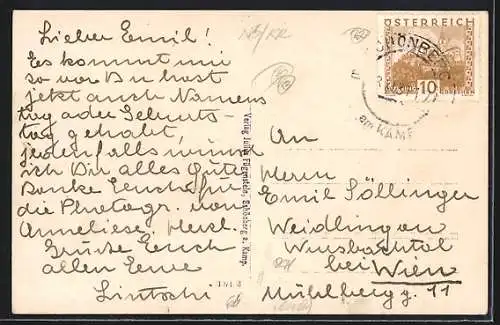 Lieber Emil!
Es kommt mir
so vor Du hast
jetzt auch Namens
tag oder Geburts-
tag gehabt,
jedenfalls wünsch
ich Dir alles Gute
Danke Euch für
die Photogr. von
Anneliese. Herzl.
Grüße Euch
allen Eure
Lintschi
Verlag Julius Fügenstein, Schönberg a. Kamp.
ÖSTERREICH
10
SCHÖNBERG
am KAMP
An
Herrn
Emil Söllinger
Weidlingau
Wurzbachtal
bei Wien
Mühlberg g. 11